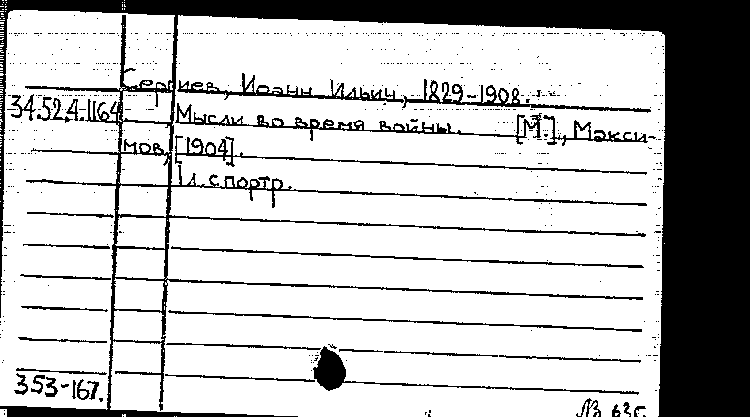 Сергиев, Иоанн Ильич, 1829-1908.
34.52.4.1164. Мысли во время войны. [М.], Макси-
мов, [1904].
1 л. с портр.
353-167.